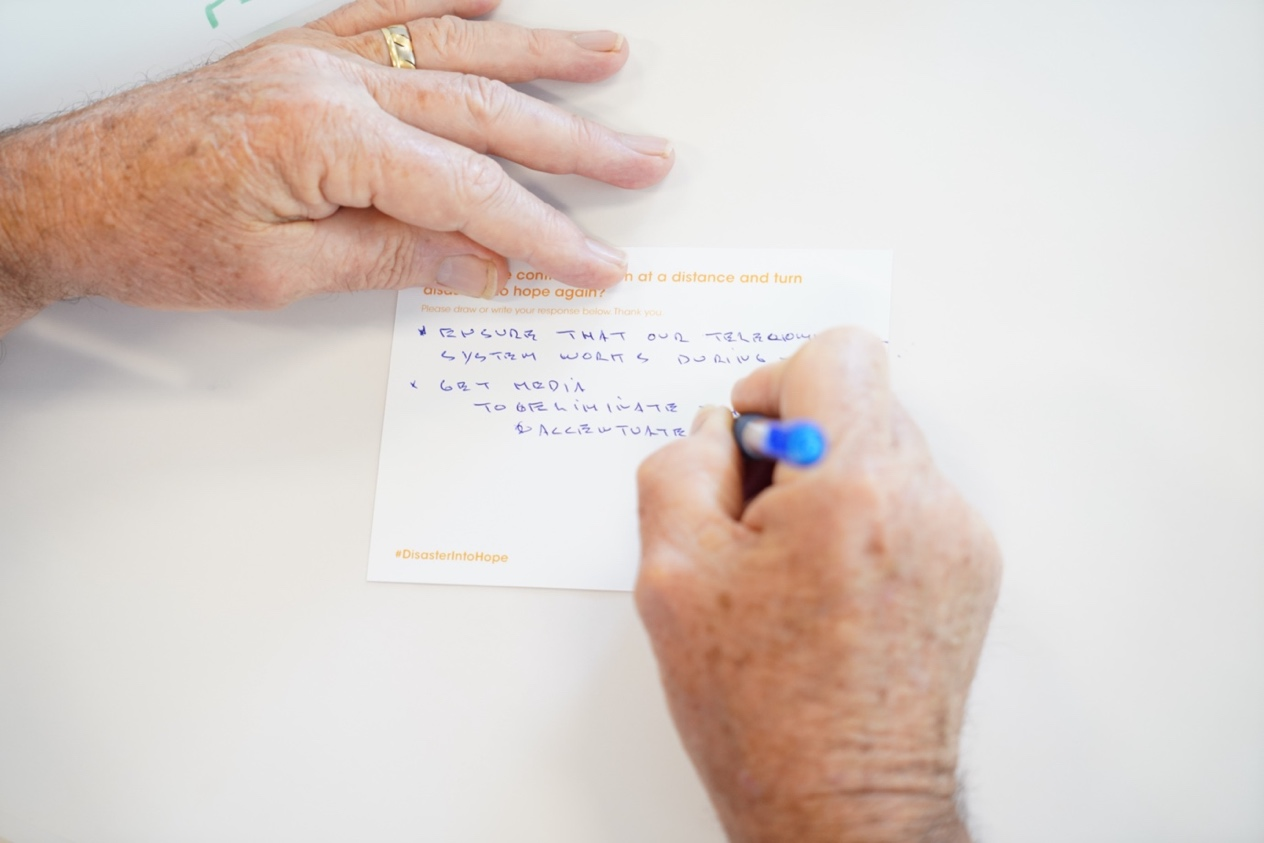 at a distance and turn
to hope again?
Please draw or write your response below. Thank you.
* ENSURE THAT OUR
SYSTEM WORKS DURING
* GET MEDIA
TO DELIMINATE
& ACCENTUATE
#DisasterIntoHope